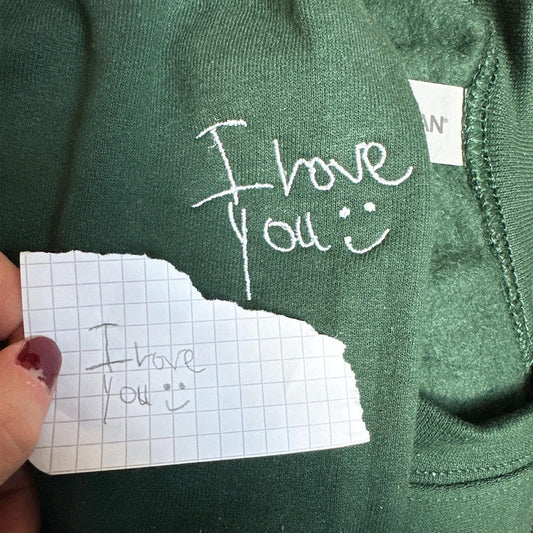 I love
you :)
AN®
I love
you :)